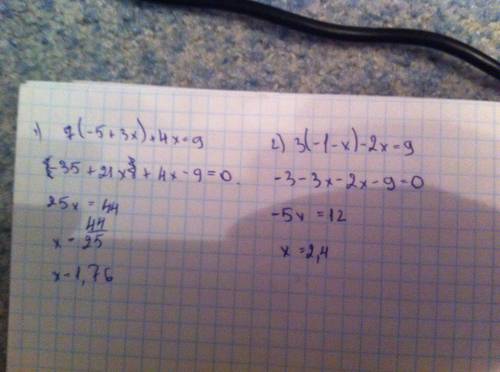 1) 7(-5+3x)+4x=9
{-35+21x}+4x-9=0.
25x=44
x=44/25
x=1,76
2) 3(-1-x)-2x=9
-3-3x-2x-9=0
-5x=12
x=2,4